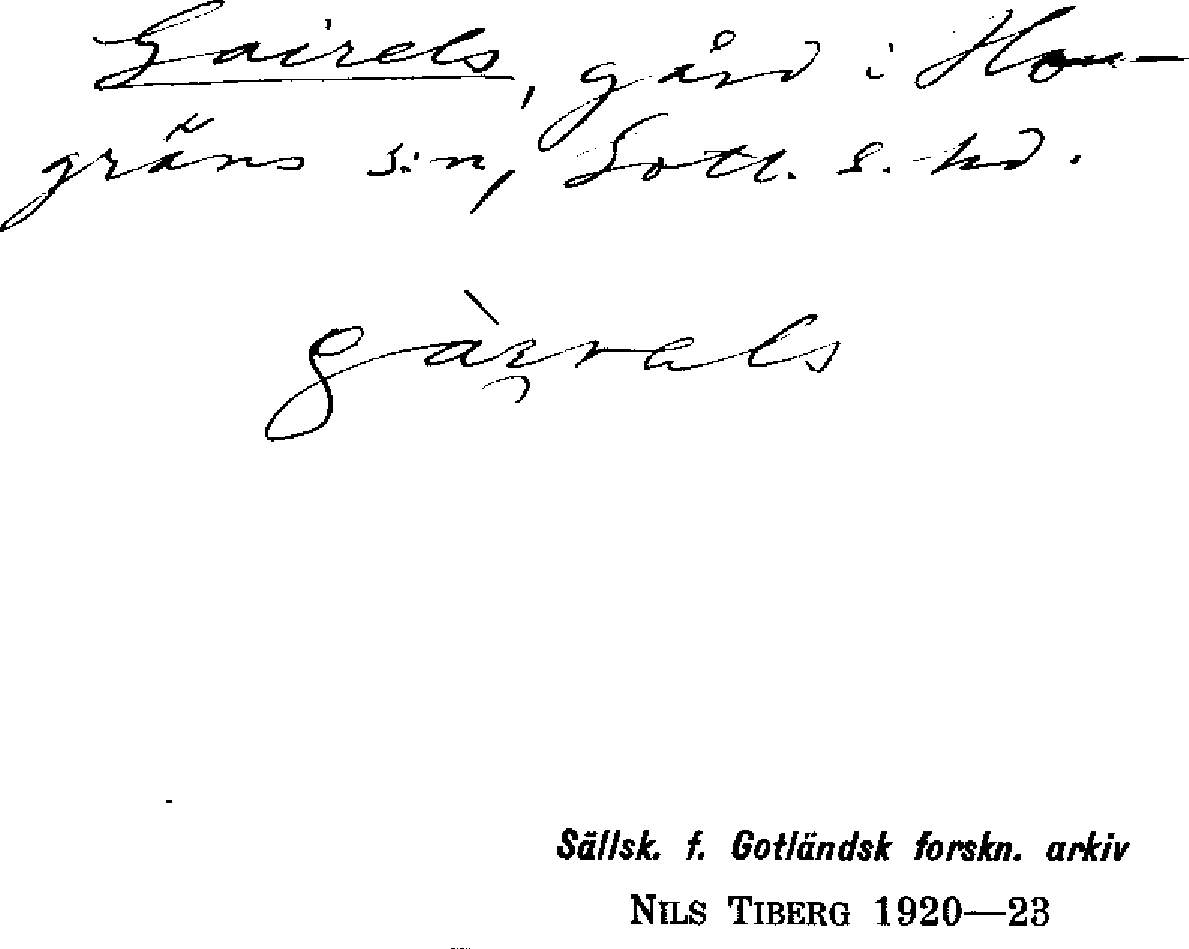 Gairels, gård i Ho-
gräns s:n, Gotl. s. hd.
gàirals
Sällsk. f. Gotländsk forskn. arkiv
NILS TIBERG 1920—23